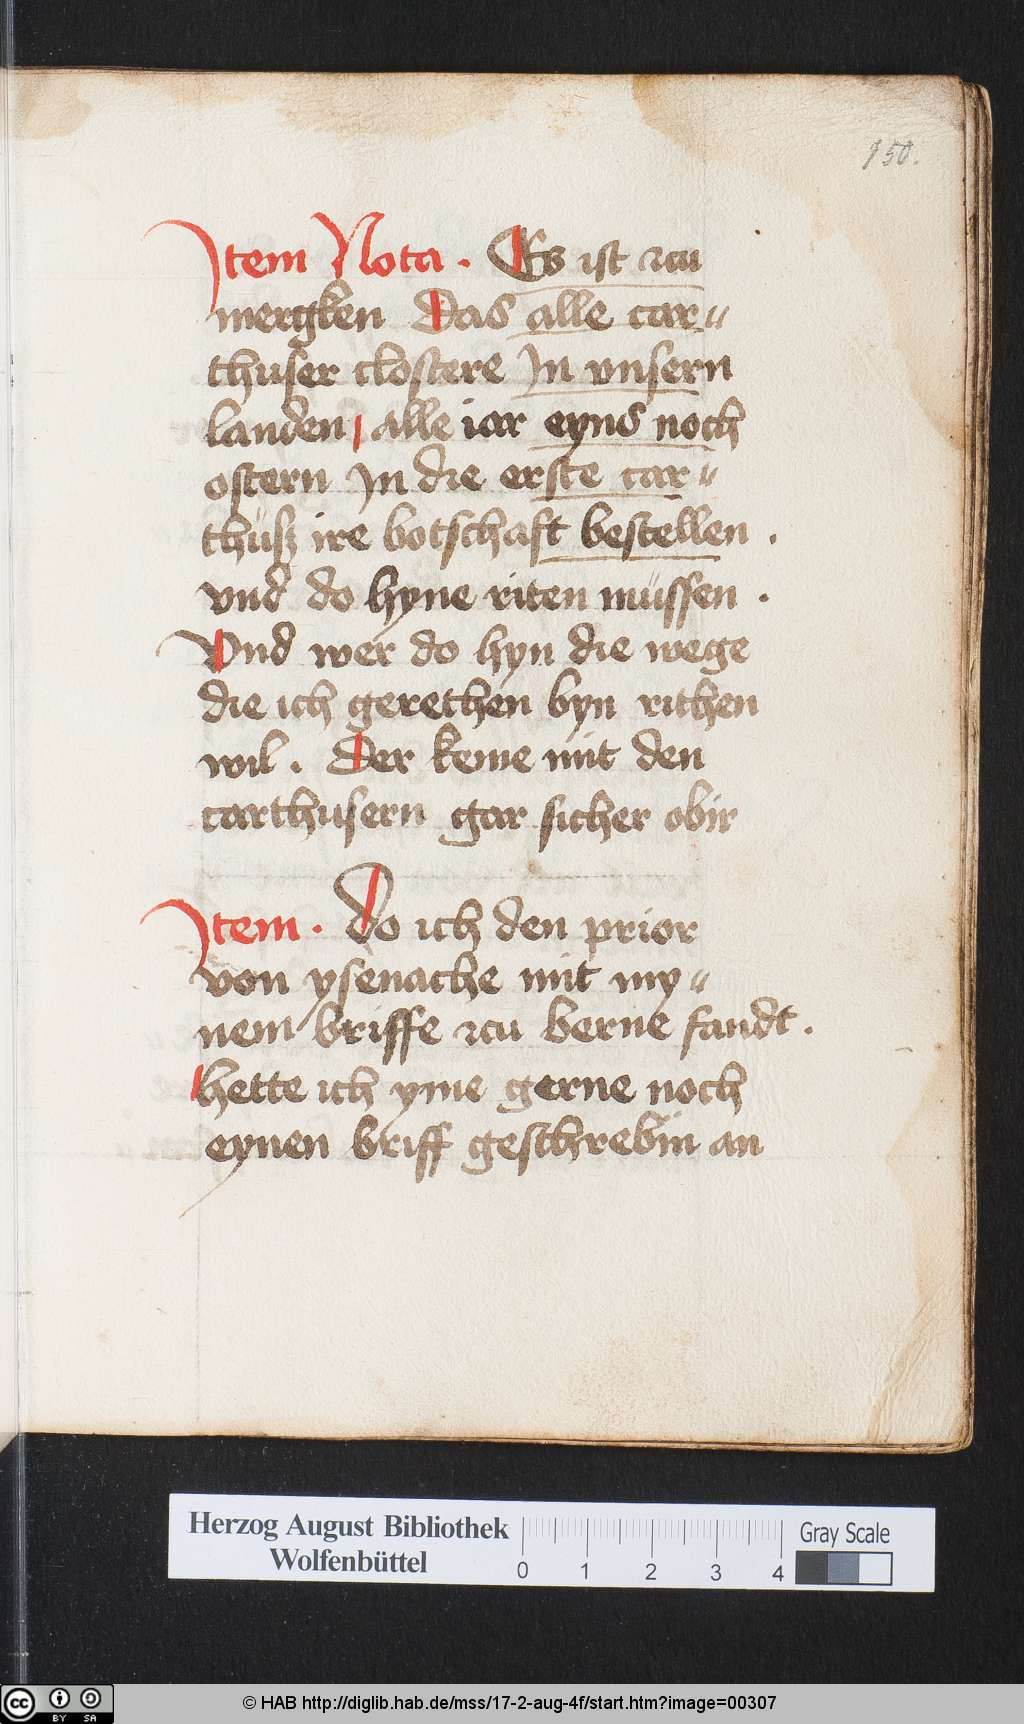 150.
Item Nota . Es ist zcu
mergken Das alle car〃
thuser clostere In vnsern
landen alle iar eyns noch
ostern In die erste car〃
thüsz ire botschaft bestellen .
vnd do hyne riten müssen .
Vnd wer do hyn die wege
die ich gerethen byn rithen
wil . Der keme mit den
carthusern gar sicher obir
Item . Do ich den prior
von ysenache mit my〃
nem briffe zcu berne fandt .
hette ich yme gerne noch
eynen briff geschrebin an
Herzog August Bibliothek
Wolfenbüttel
0 1 2 3 4
Gray Scale
cc BY SA
© HAB http://diglib.hab.de/mss/17-2-aug-4f/start.htm?image=00307